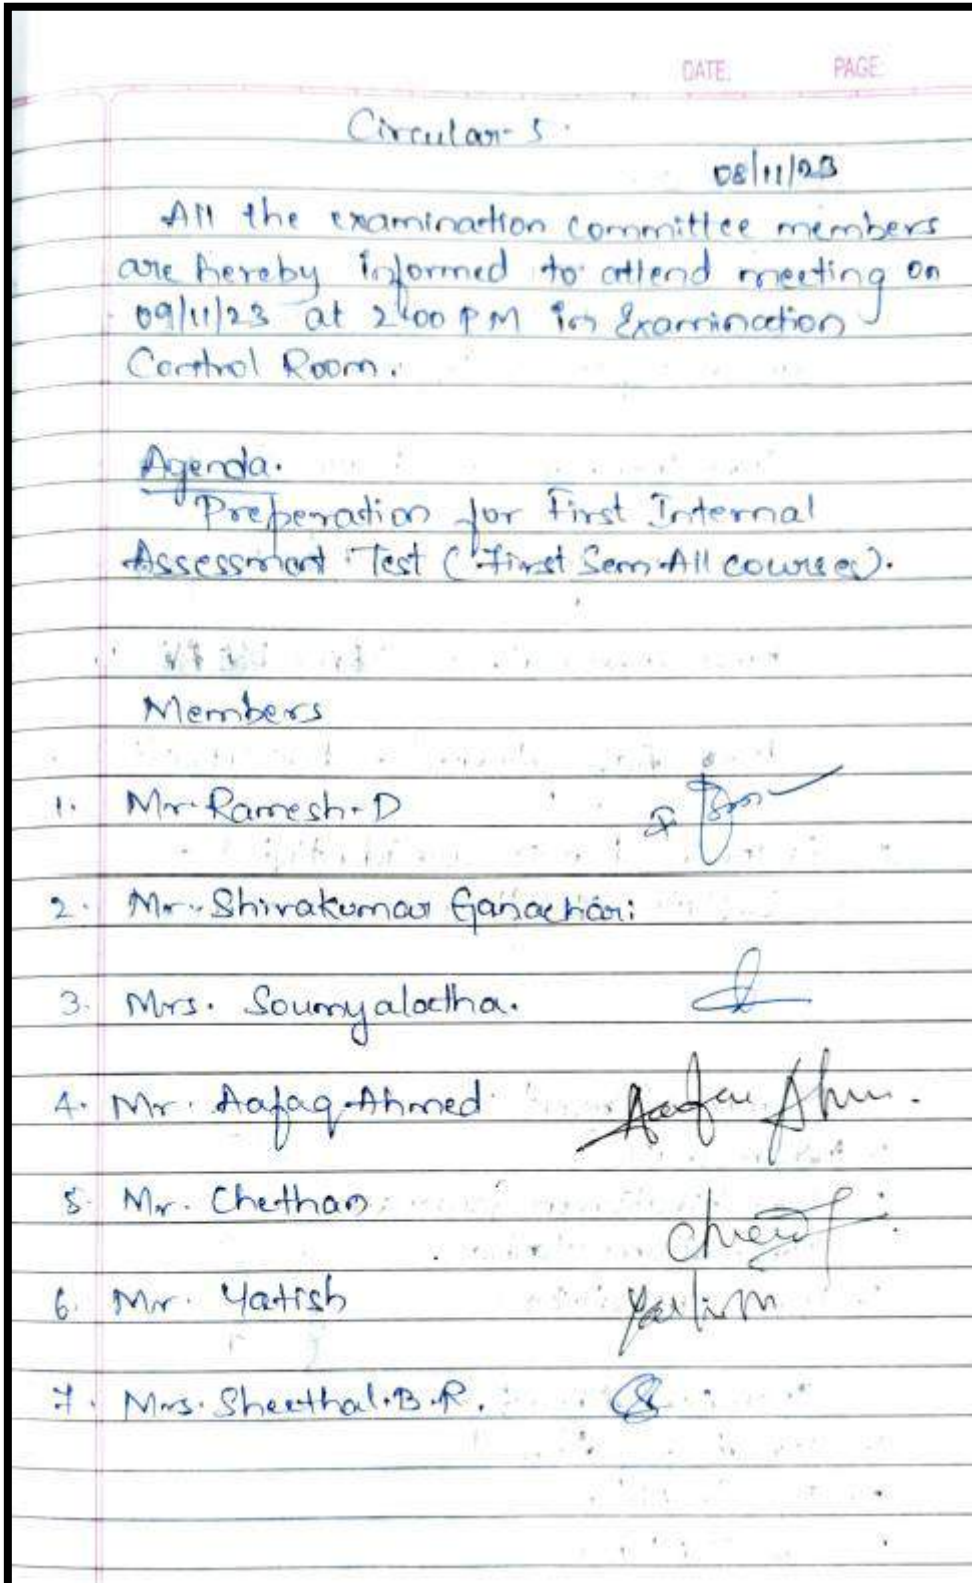 DATE: PAGE:
Circular-5.
08/11/23
All the examination committee members
are hereby informed to attend meeting on
09/11/23 at 2:00 PM in Examination
Control Room.
Agenda.
Preperation for First Internal
Assessment Test (First Sem All courses).
Members
1. Mr. Ramesh. D
2. Mr. Shivakumar Ganachari
3. Mrs. Soumyalatha.
4. Mr. Aafaq Ahmed
5. Mr. Chethan
6. Mr. Yatish Yatish
7. Mrs. Sheethal.B.R.